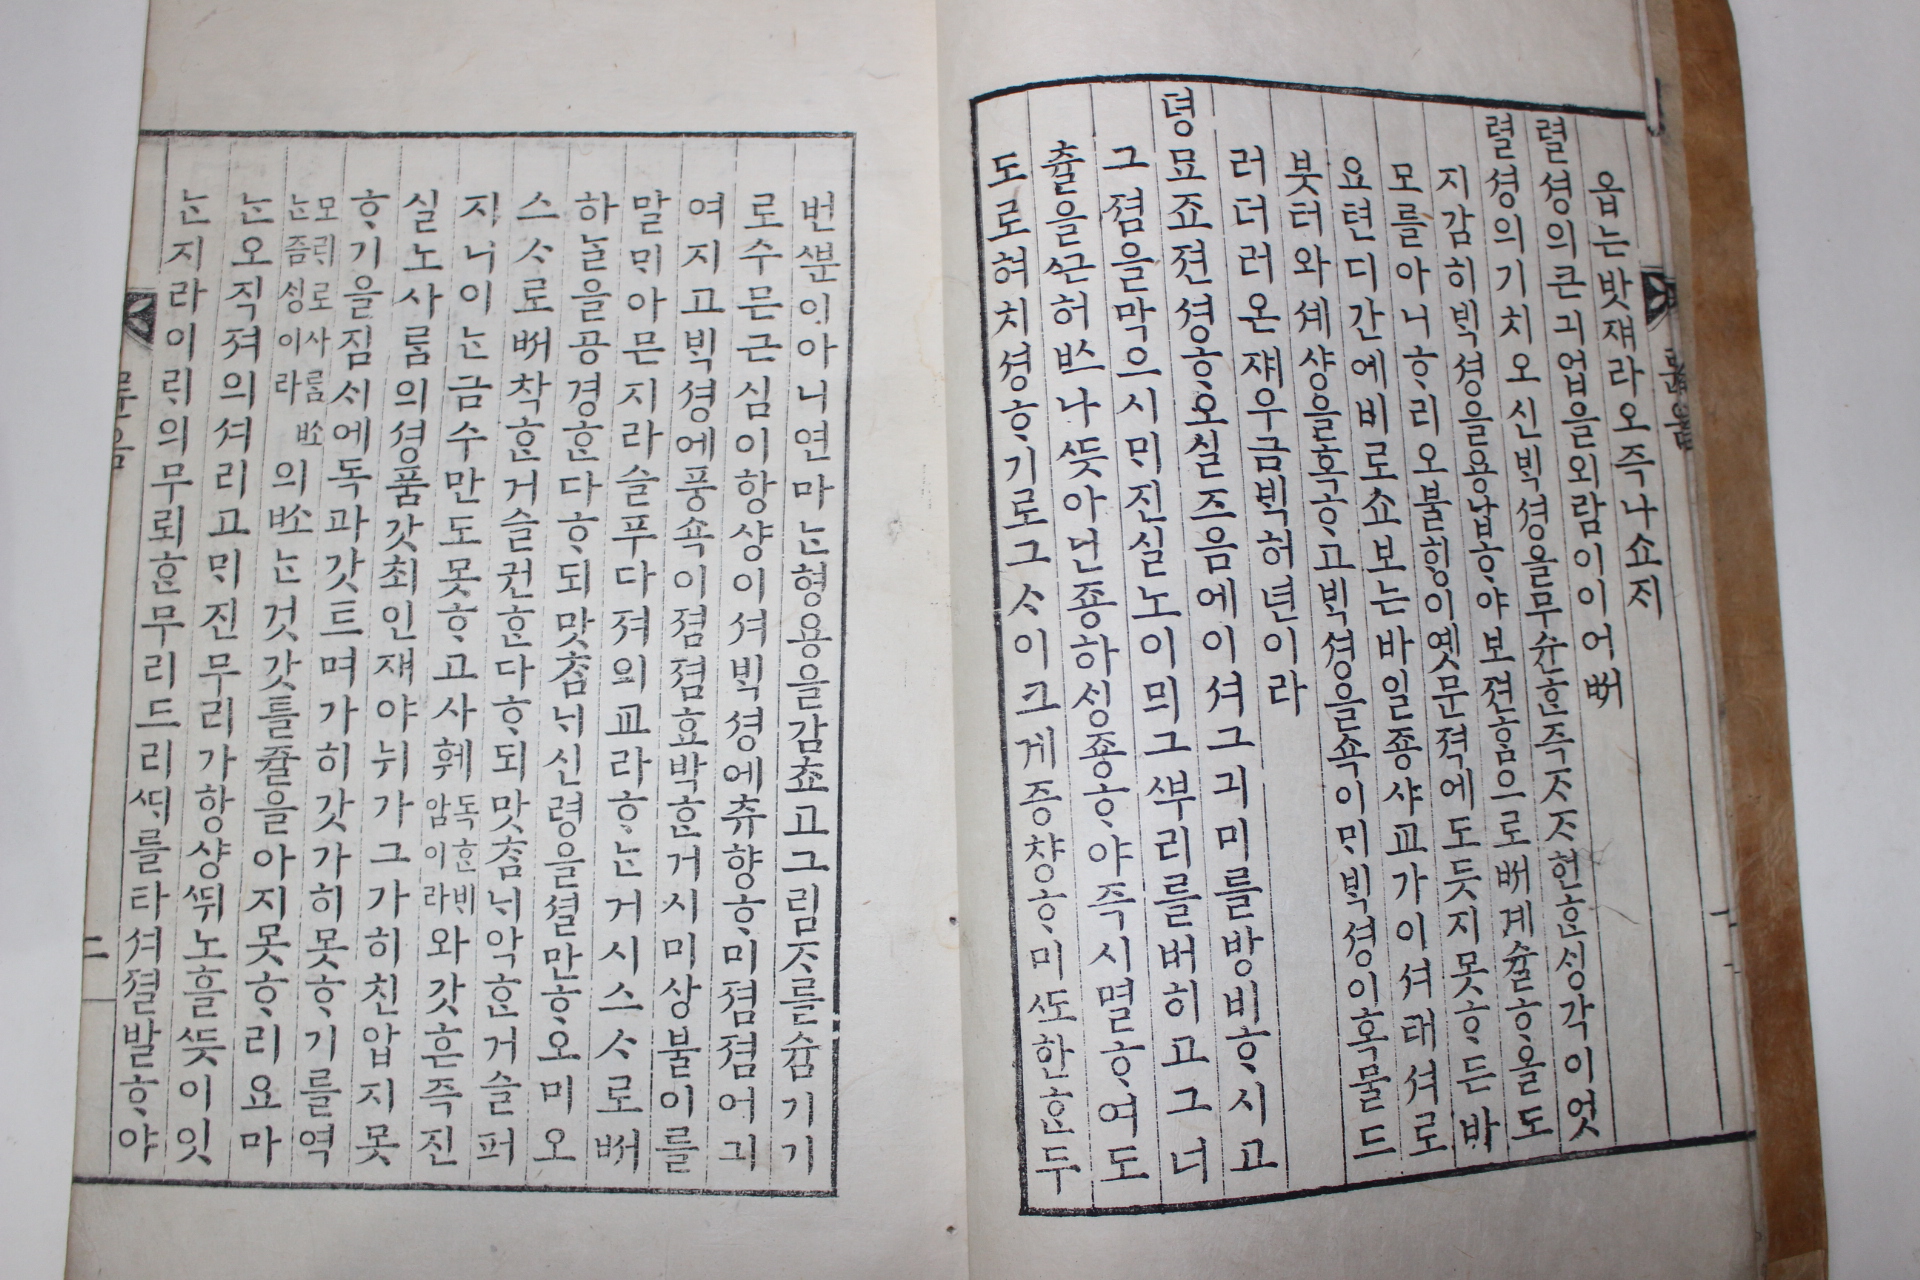 옵는밧쟤라오즉나쇼지
렬셩의큰긔업을외람이이어ᄡᅥ
렬셩의기치오신ᄇᆡᆨ셩을무슌ᄒᆞᆫ즉ᄌᆞᄌᆞ현ᄒᆞᆫᄉᆡᆼ각이업
지감히ᄇᆡᆨ셩을용납ᄒᆞ야보젼ᄒᆞᆷ으로ᄡᅥ계슐ᄒᆞ올도
모를아니ᄒᆞ리오불ᄒᆡᆼ이옛문젹에도듯지못ᄒᆞ든바
요텬디간에비로쇼보는바일죵샤교가이셔태셔로
붓터와셰샹을혹ᄒᆞ고ᄇᆡᆨ셩을쇽이ᄆᆡᄇᆡᆨ셩이혹물드
러더러온쟤우금ᄇᆡᆨ허년이라
뎡묘죠젼셩ᄒᆞ오실즈음에이셔그긔미를방비ᄒᆞ시고
그졈을막으시ᄆᆡ진실노이믜그ᄲᅮ리를버히고그너
츌을ᄭᅳᆫ허ᄡᅳ나ᄯᅳᆺ아닌죵하ᄉᆡᆼ죵ᄒᆞ야즉시멸ᄒᆞ여도
도로혀치셩ᄒᆞ기로그ᄉᆞ이크게즁챵ᄒᆞ미ᄯᅩ한ᄒᆞᆫ두
번ᄲᅮᆫ이아니연마ᄂᆞᆫ형용을감쵸고그림ᄌᆞ를슘기기
로수믄근심이항샹이셔ᄇᆡᆨ셩에츄향ᄒᆞ미졈졈어긔
여지고ᄇᆡᆨ셩에풍쇽이졈졈효박ᄒᆞᆫ거시미상불이를
말ᄆᆡ아믄지라슬푸다져의교라ᄒᆞᄂᆞᆫ거시스ᄉᆞ로ᄡᅥ
하ᄂᆞᆯ을공경ᄒᆞᆫ다ᄒᆞ되맛ᄎᆞᆷᄂᆡ신령을셜만ᄒᆞ오미오
스ᄉᆞ로ᄡᅥ착ᄒᆞᆫ거슬권ᄒᆞᆫ다ᄒᆞ되맛ᄎᆞᆷᄂᆡ악ᄒᆞᆫ거슬퍼
지니이ᄂᆞᆫ금수만도못ᄒᆞ고사훼독ᄒᆞᆫᄇᆡ암이라와갓흔즉진
실노사ᄅᆞᆷ의셩품갓최인쟤야뉘가그가히친압지못
ᄒᆞ기을짐ᄉᆞ에독과갓트며가히갓가히못ᄒᆞ기를역
모ᄅᆡ로사ᄅᆞᆷᄡᅩᄂᆞᆫ즘ᄉᆡᆼ이라의ᄡᅩᄂᆞᆫ것갓틀쥴을아지못ᄒᆞ리요마
ᄂᆞᆫ오직져의셔리고ᄆᆡ진무리가항샹ᄯᅱ노흘ᄯᅳᆺ이잇
ᄂᆞᆫ지라이ᄅᆡ의무뢰ᄒᆞᆫ무리드리ᄯᅢ를타셔졀발ᄒᆞ야
륜음
二